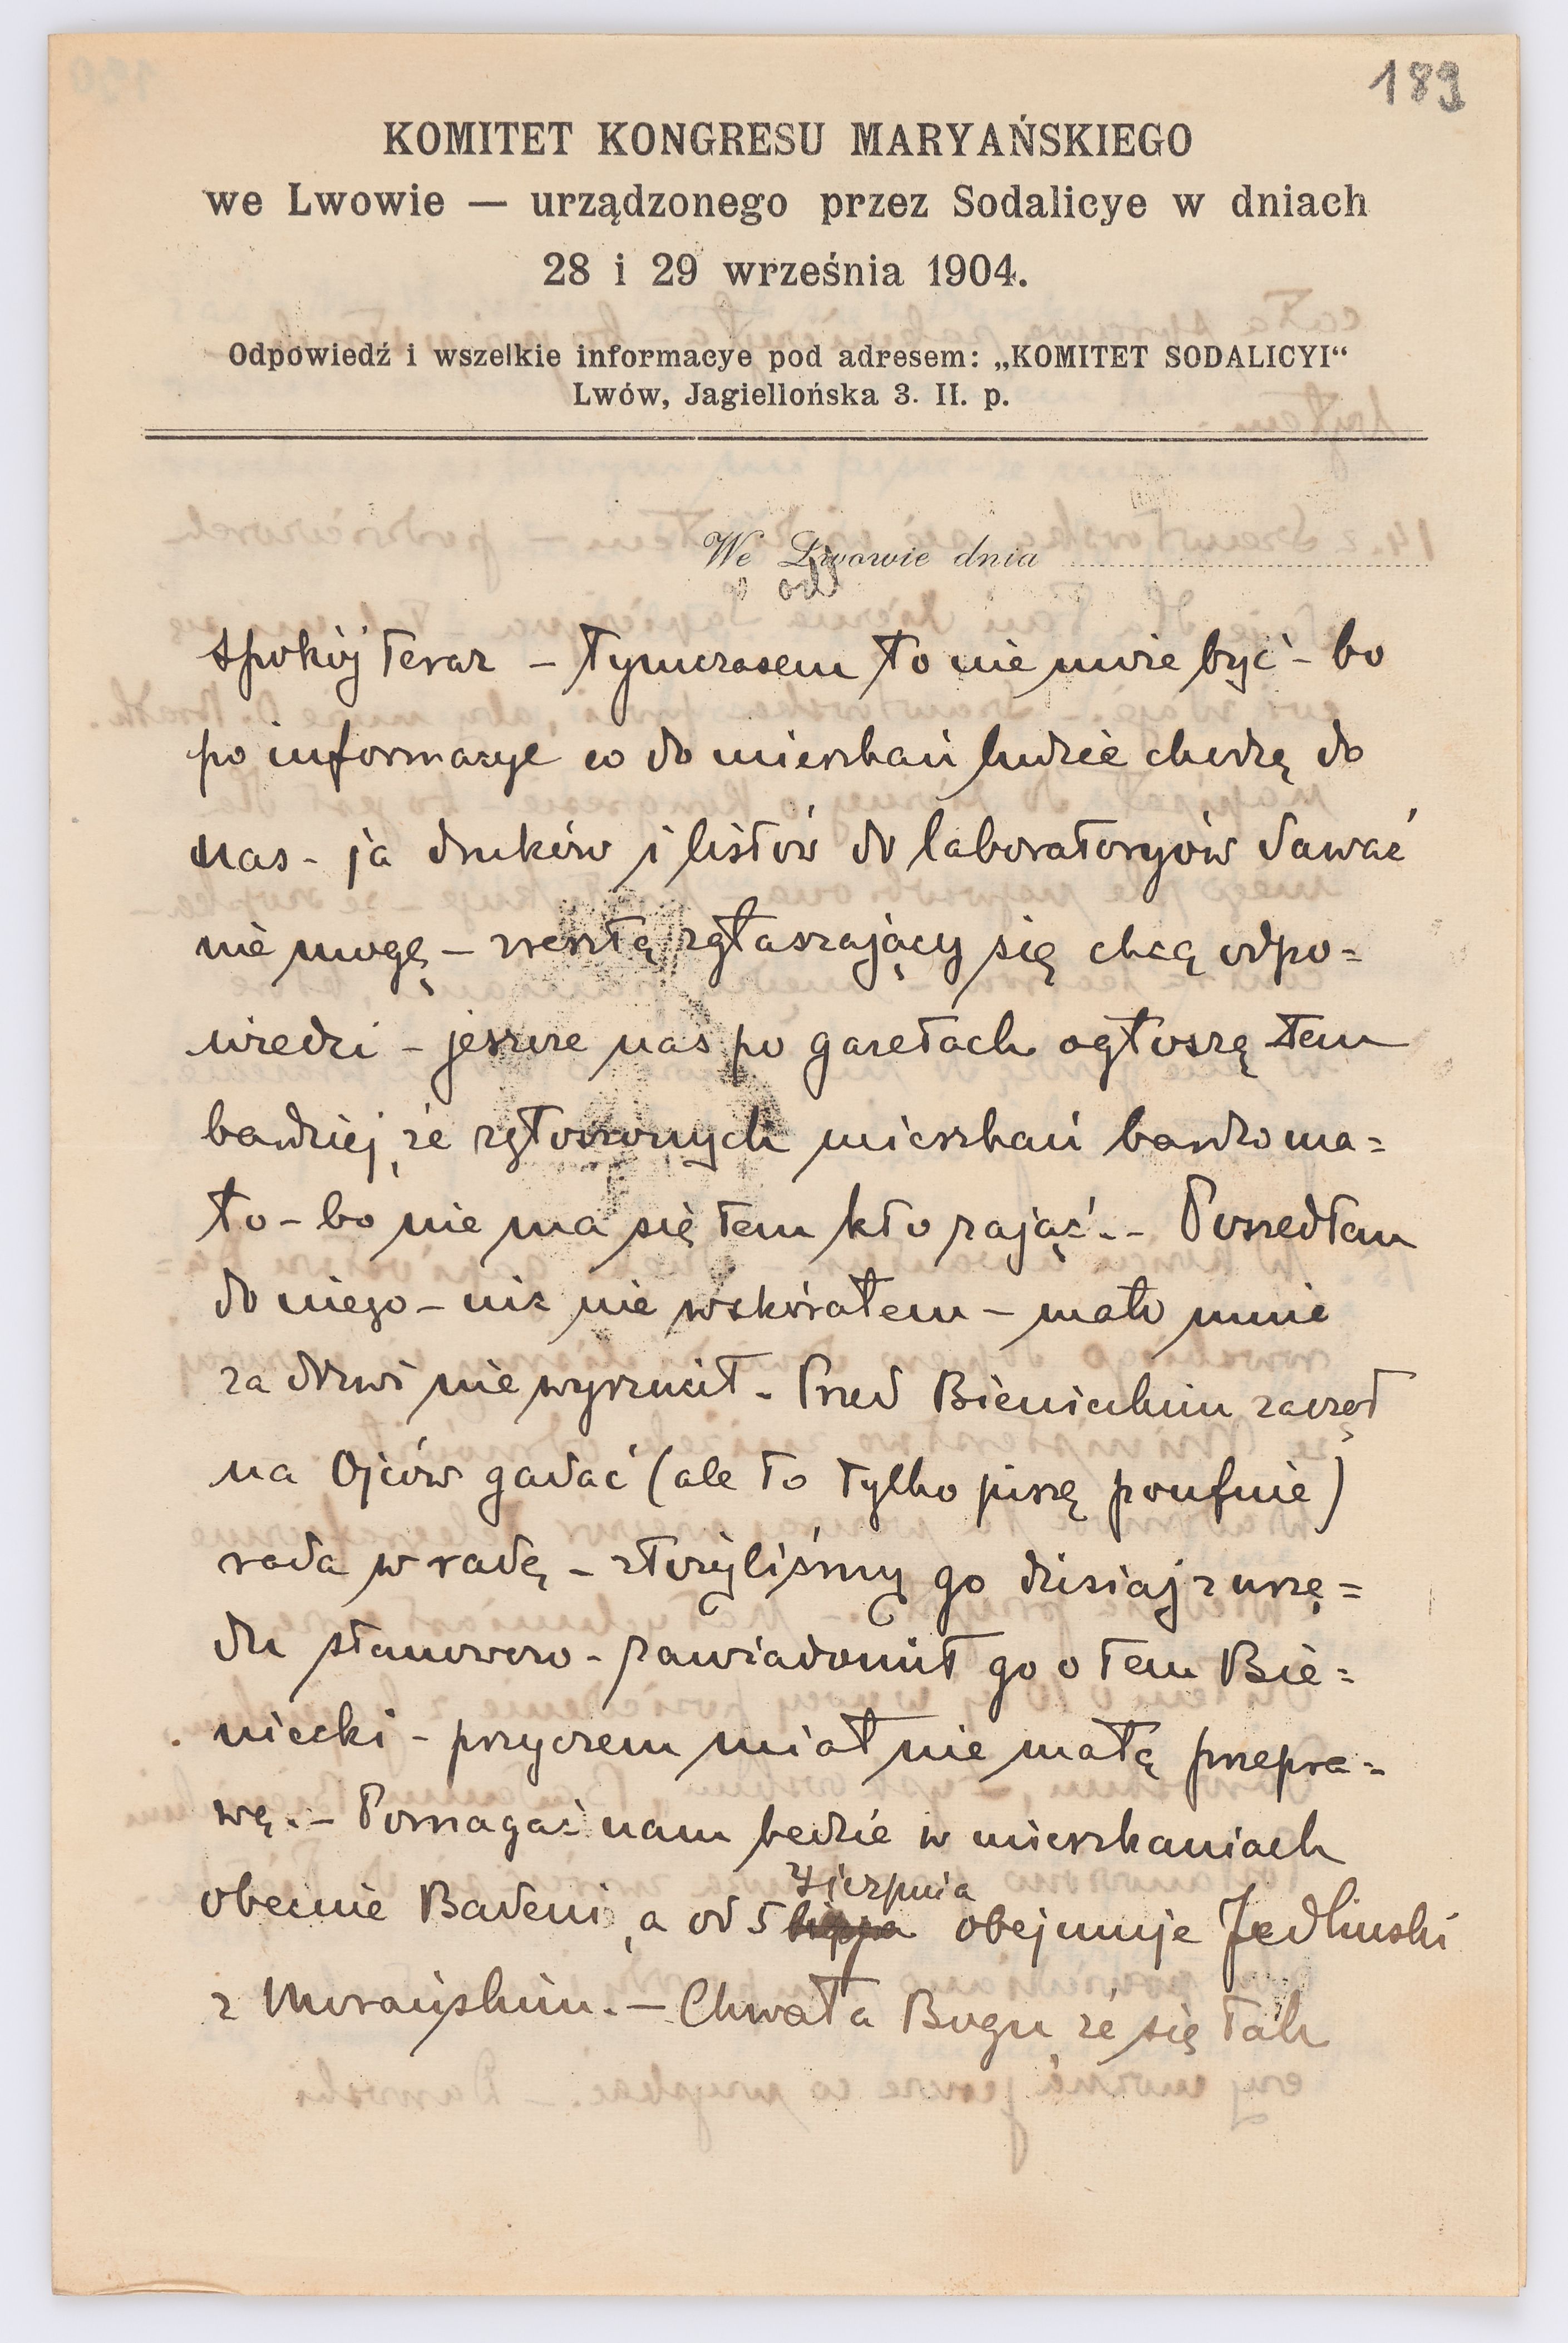 189
KOMITET KONGRESU MARYAŃSKIEGO
we Lwowie — urządzonego przez Sodalicye w dniach
28 i 29 września 1904.
Odpowiedź i wszelkie informacye pod adresem: „KOMITET SODALICYI“
Lwów, Jagiellońska 3. II. p.
We Lwowie dnia
spokój teraz – tymczasem to nie może być – bo
po informacye co do mieszkań ludzie chodzą do
nas – ja druków i listów do laboratoryów dawać
nie mogę – zresztą zgłaszający się chcą odpo=
wiedzi – jeszcze nas po gazetach ogłoszą tem
bardziej, że zgłoszonych mieszkań bardzo ma=
ło – bo nie ma się tem kto zająć. – Poszedłem
do niego – nic nie wskórałem – mało mnie
za drzwi nie wyrzucił – Przed Bienieckim zaczął
na Ojców gadać (ale to tylko piszę poufnie)
rada w radę – złożyliśmy go dzisiaj z urzę=
du stanowczo – zawiadomił go o tem Bie=
niecki – przyczem miał nie małą przepra=
wę. – Pomagać nam będzie w mieszkaniach
obecnie Badeni, a od 5 sierpnia obejmuje Jedliński
z Morawskim. – Chwała Bogu, że się tak